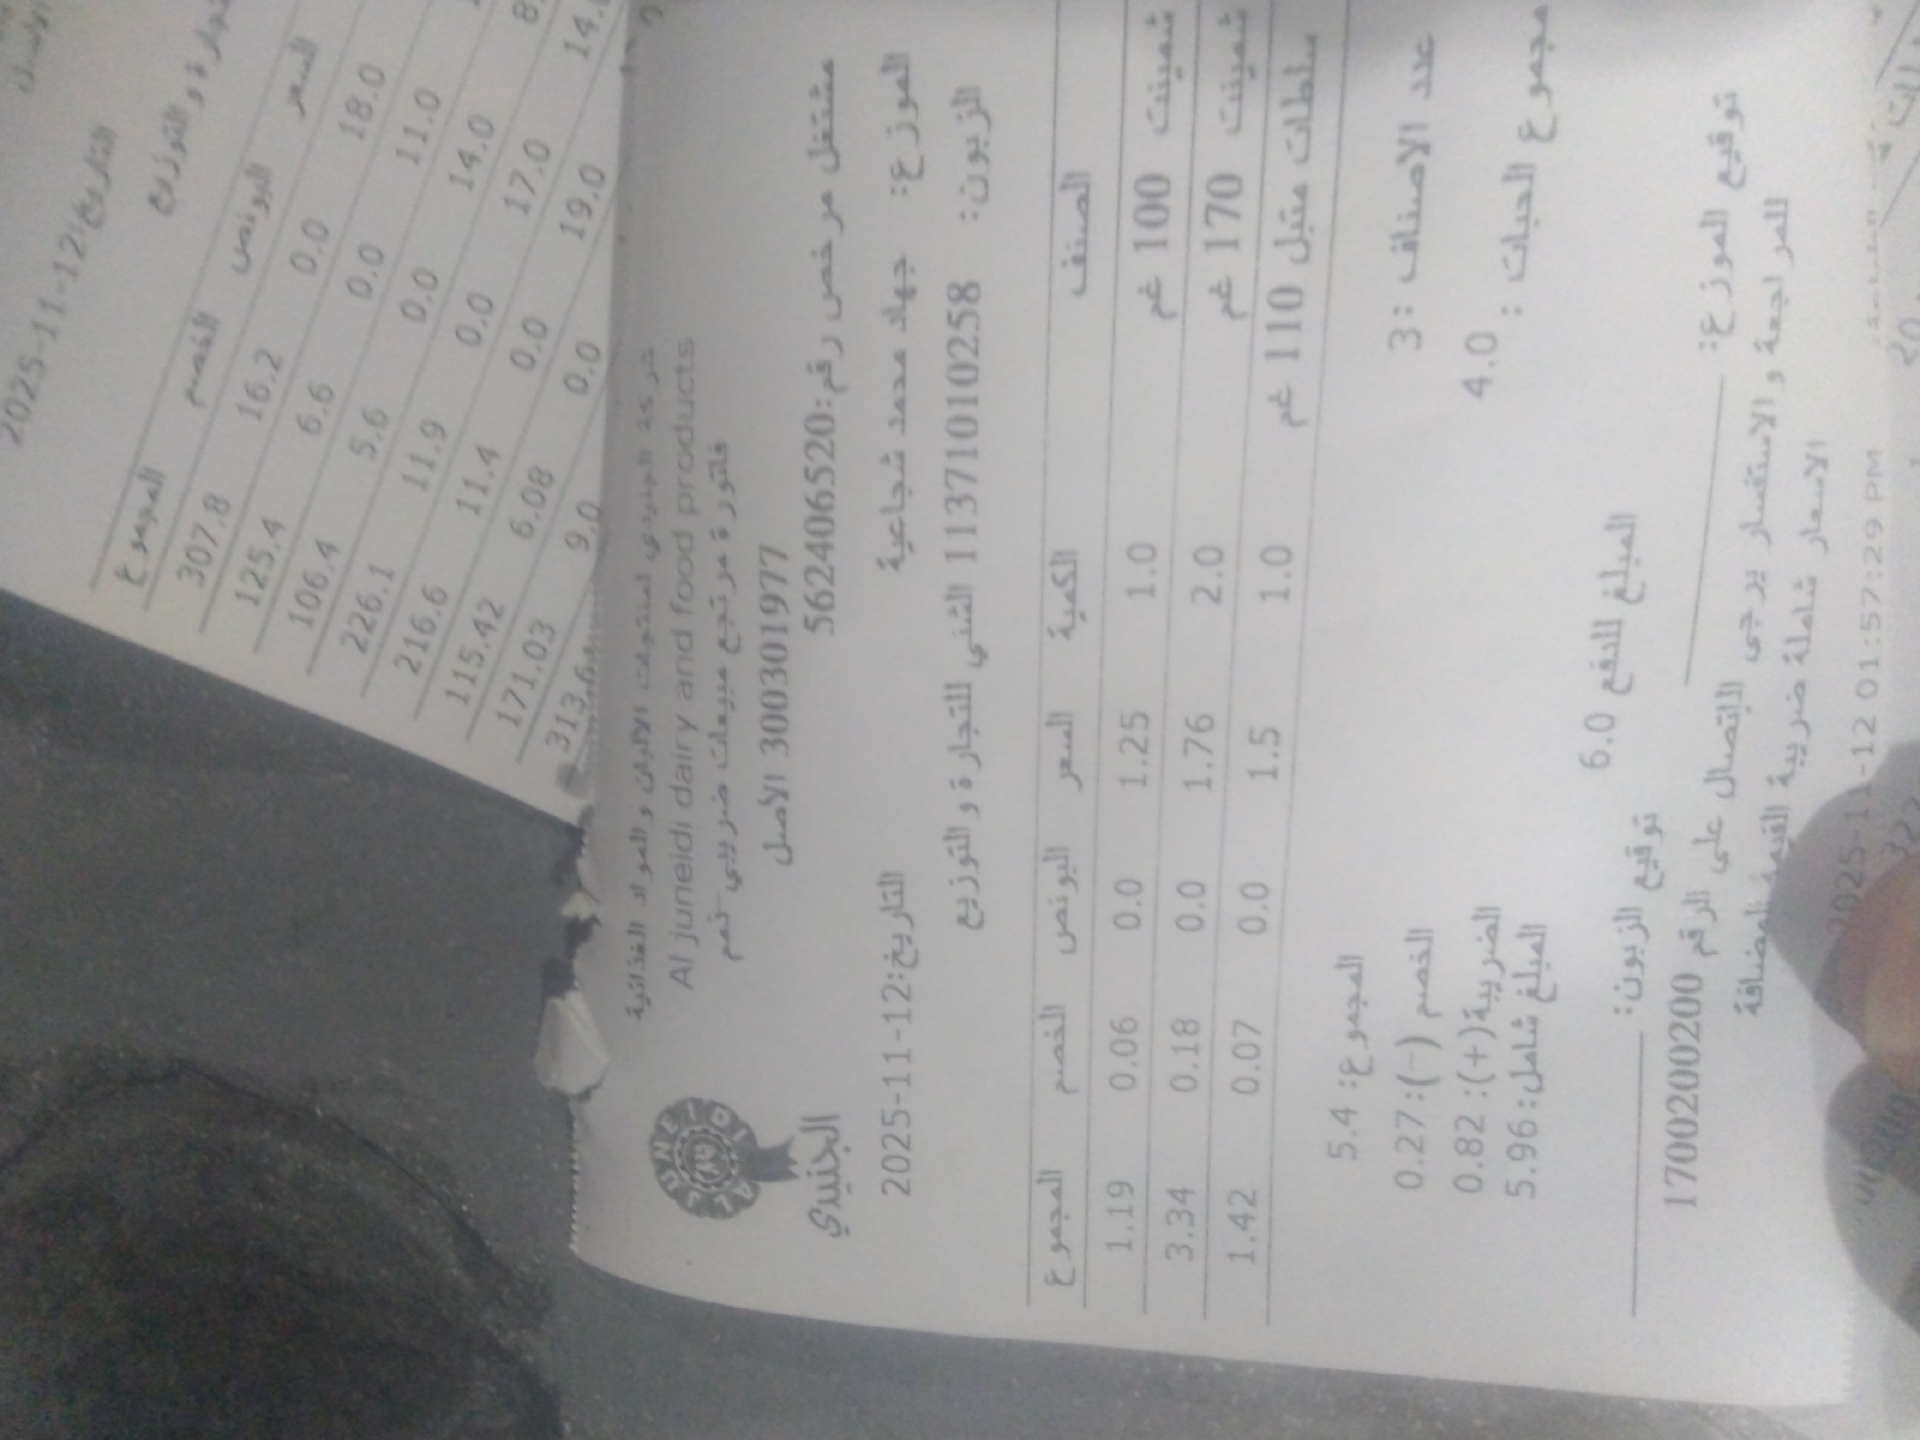 التاريخ:12-11-2025
و التوزيع
السعر البونص الخصم المجموع
18.0 0.0 16.2 307.8
11.0 0.0 6.6 125.4
14.0 0.0 5.6 106.4
17.0 0.0 11.9 226.1
19.0 0.0 11.4 216.6
0.0 6.08 115.42
9.0 171.03
313.6
شركة الجنيدي لمنتجات الالبان و المواد الغذائية
Al juneidi dairy and food products
فاتورة مرتجع مبيعات ضريبي-نعم
300301977 الاصل
AL JUNEIDI
الجنيدي
مشتغل مرخص رقم:562406520
الموزع: جهاد محمد شجاعية
التاريخ:12-11-2025
الزبون: 1137101010258 الشني للتجارة و التوزيع
الصنف الكمية السعر البونص الخصم المجموع
شمينت 100 غم 1.0 1.25 0.0 0.06 1.19
شمينت 170 غم 2.0 1.76 0.0 0.18 3.34
سلطات متبل 110 غم 1.0 1.5 0.0 0.07 1.42
المجموع: 5.4
عدد الاصناف :3
الخصم (-): 0.27
مجموع الحبات : 4.0
الضريبة(+): 0.82
المبلغ شامل: 5.96
المبلغ للدفع 6.0
توقيع الموزع:
توقيع الزبون:
للمراجعة و الاستفسار يرجى الاتصال على الرقم 1700200200
الاسعار شاملة ضريبة القيمة المضافة
2025-11-12 01:57:29 PM